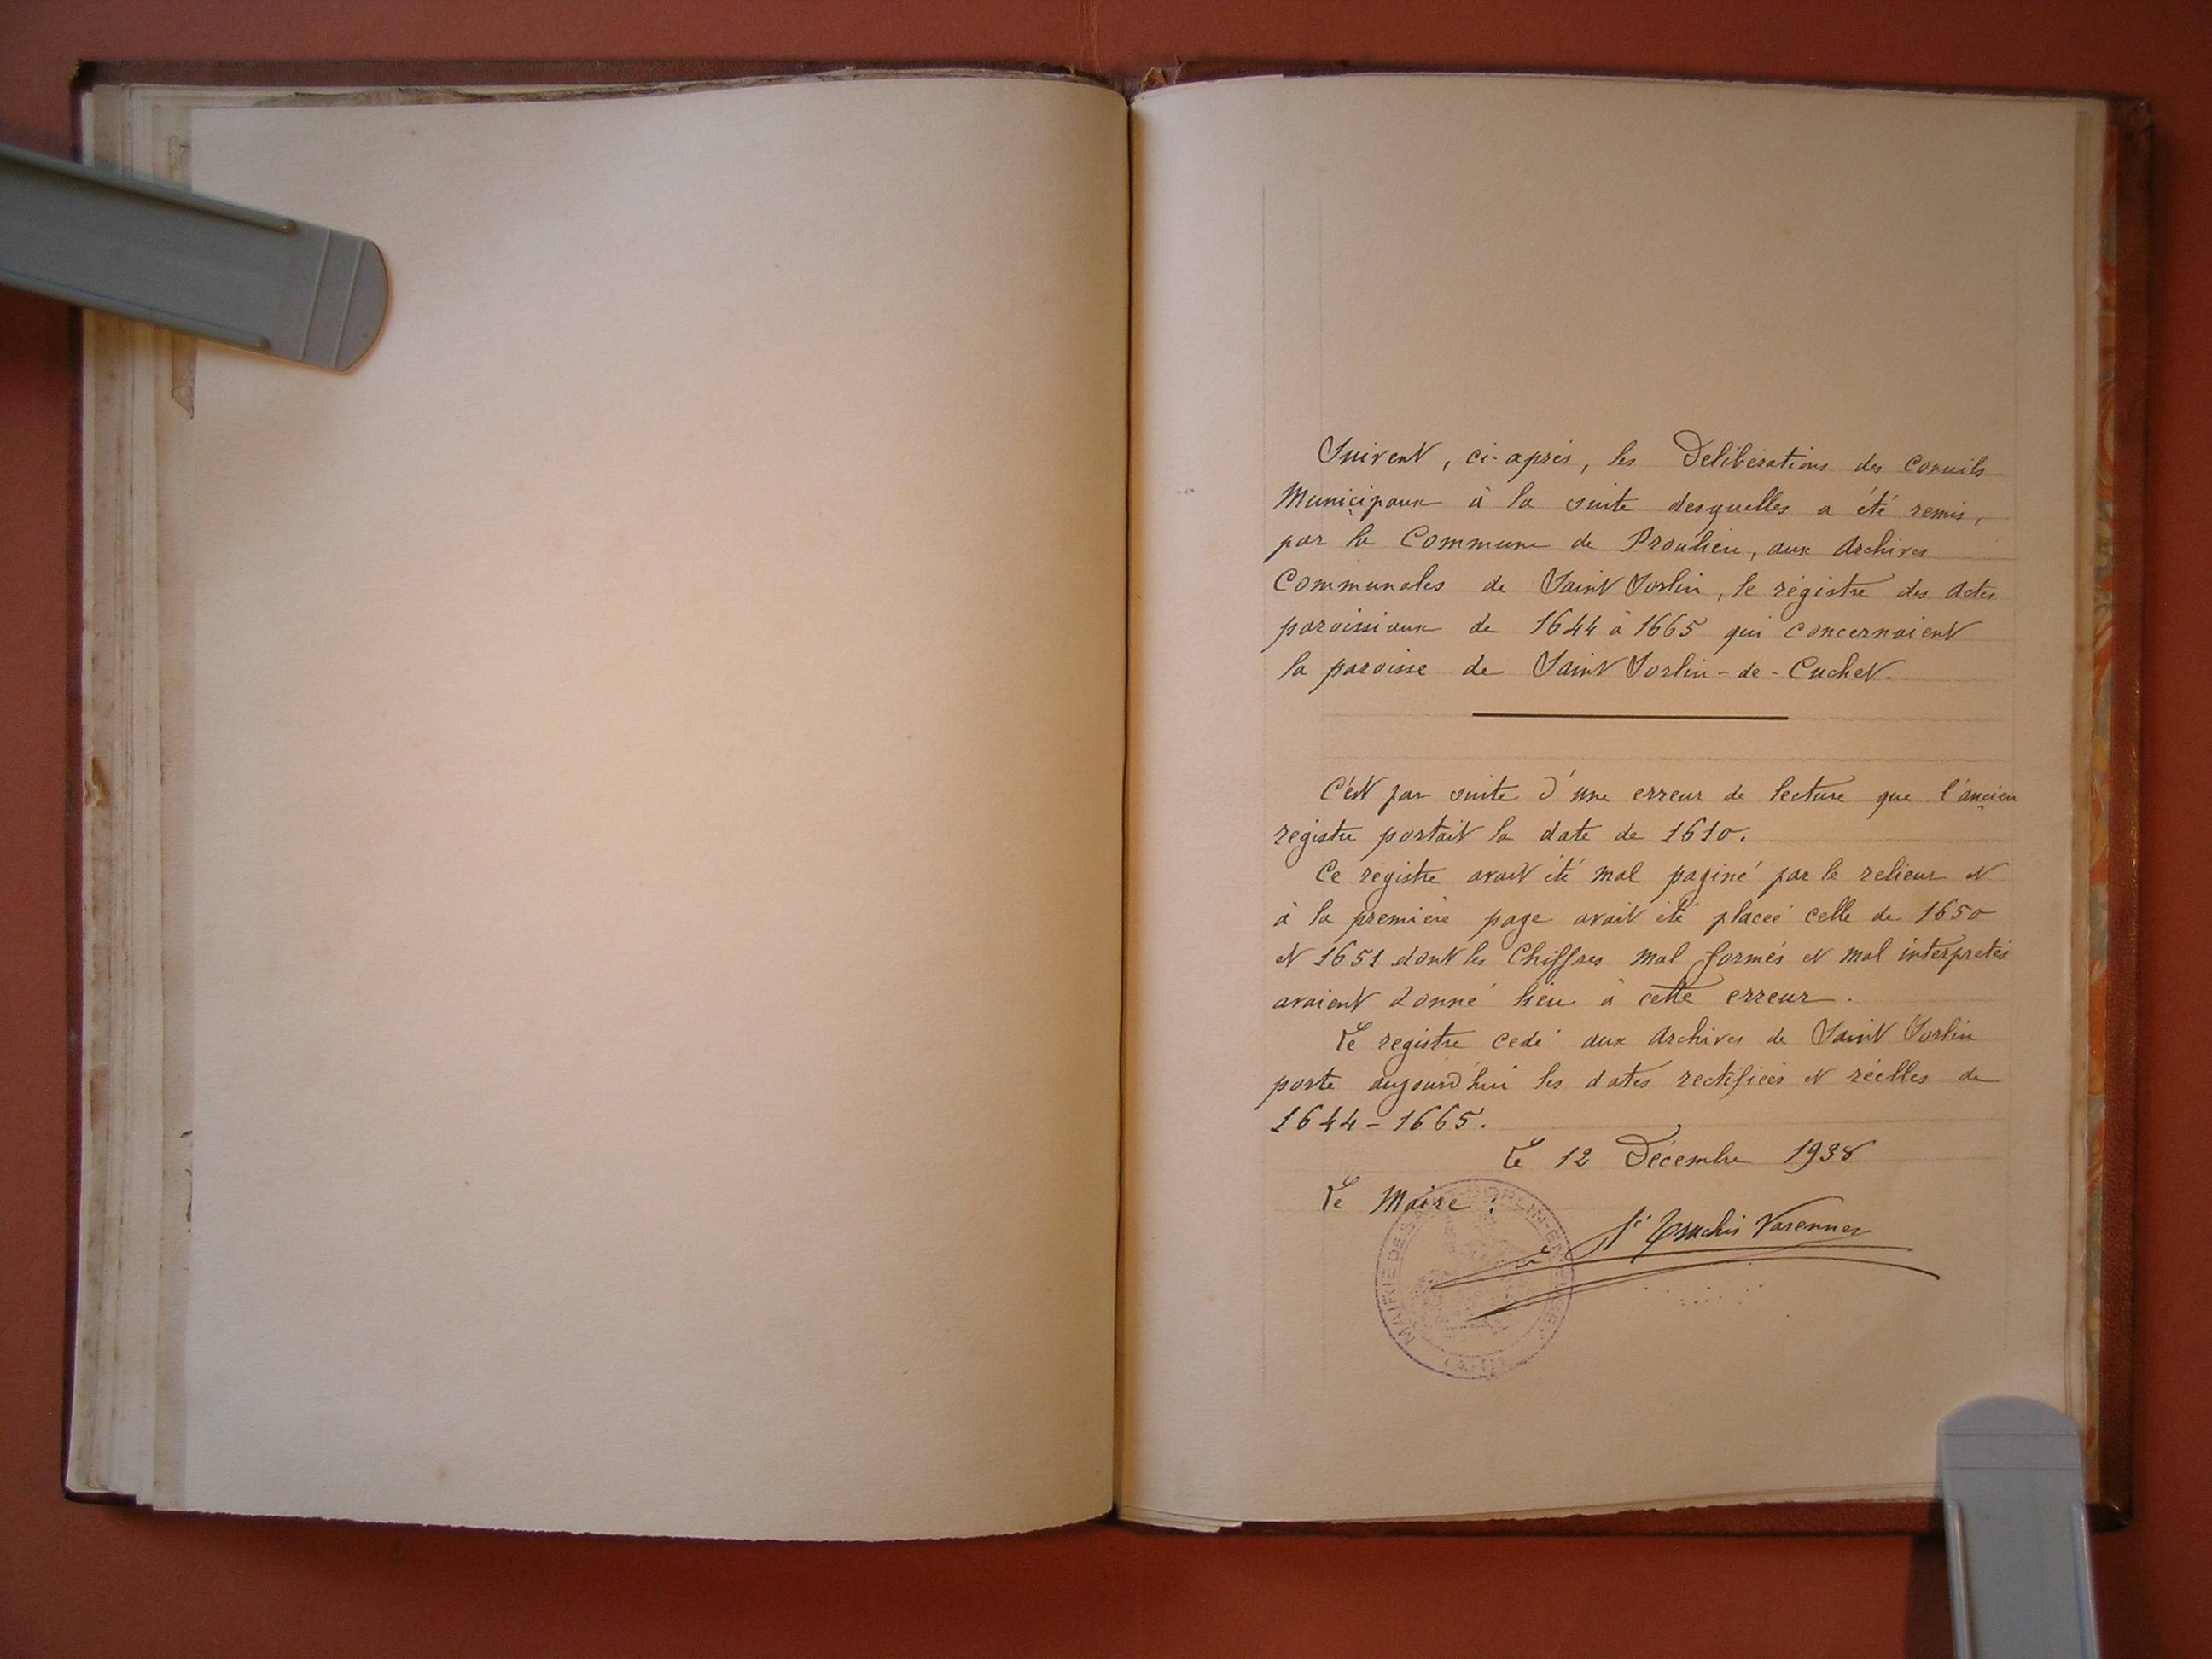 Suivent, ci-après, les Délibérations des Conseils
Municipaux à la suite desquelles a été remis,
par la Commune de Proulieu, aux Archives
Communales de Saint Sorlin, le régistre des Actes
paroissiaux de 1644 à 1665 qui concernaient
la paroisse de Saint Sorlin-de-Cuchet.
C'est par suite d'une erreur de lecture que l'ancien
registre portait la date de 1610.
Ce registre avait été mal paginé par le relieur et
à la première page avait été placée celle de 1650
et 1651 dont les Chiffres mal formés et mal interpretés
avaient donné lieu à cette erreur.
Le registre cedé aux Archives de Saint Sorlin
porte aujourd'hui les dates rectifiées et réelles de
1644-1665.
Le 12 Décembre 1938
Le Maire :
Varennes
MAIRIE DE SORLIN-EN-BUGEY
(AIN)